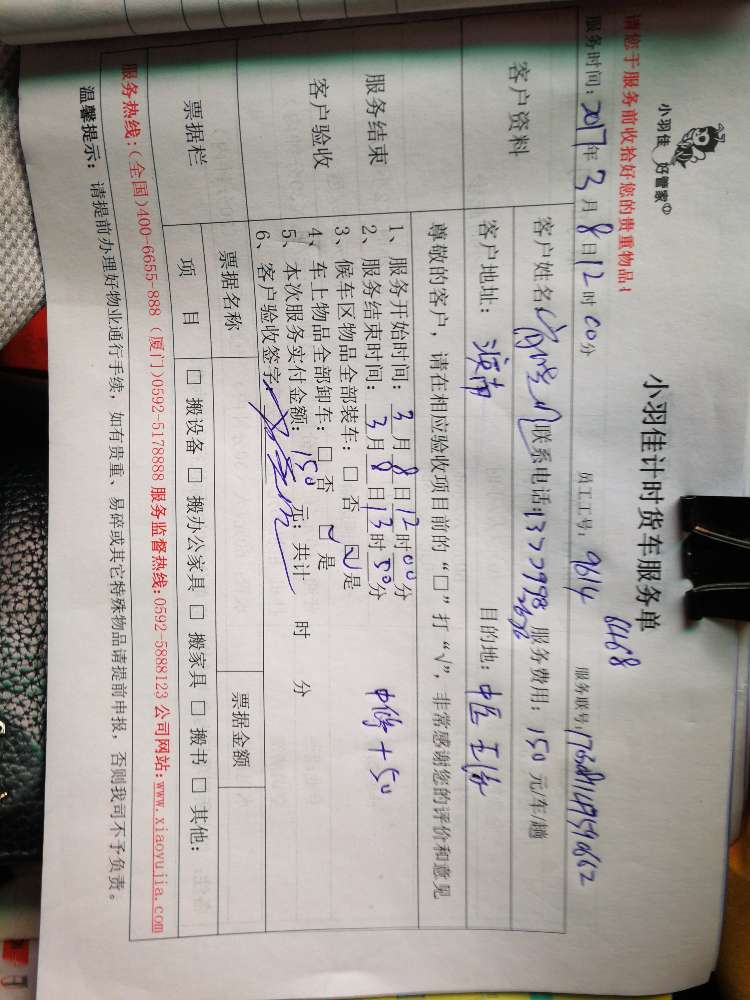 小羽佳 好管家
小羽佳计时货车服务单
6468
请您于服务前收拾好您的贵重物品!
服务时间: 2017年3月8日12时00分 员工工号: 9614 服务联号:
客户资料
客户姓名 联系电话: 服务费用: 150元/车/趟
客户地址: 滨南 目的地: 中医
服务结束
客户验收
尊敬的客户, 请在相应验收项目前的“□”打“√”, 非常感谢您的评价和意见
1、服务开始时间: 3月8日12时00分
2、服务结束时间: 3月8日13时50分
3、候车区物品全部装车: □ 否 ☑ 是
4、车上物品全部卸车: □ 否 ☑ 是
5、本次服务实付金额: 150元; 共计 时 分
6、客户验收签字:
+50
票据栏
票据名称 票据金额
项 目 □ 搬设备 □ 搬办公家具 □ 搬家具 □ 搬书 □ 其他:
服务热线:(全国)400-6655-888 (厦门)0592-5178888 服务监督热线:0592-5888123 公司网站:www.xiaoyujia.com
温馨提示: 请提前办理好物业通行手续, 如有贵重、易碎或其它特殊物品请提前申报, 否则我司不予负责。